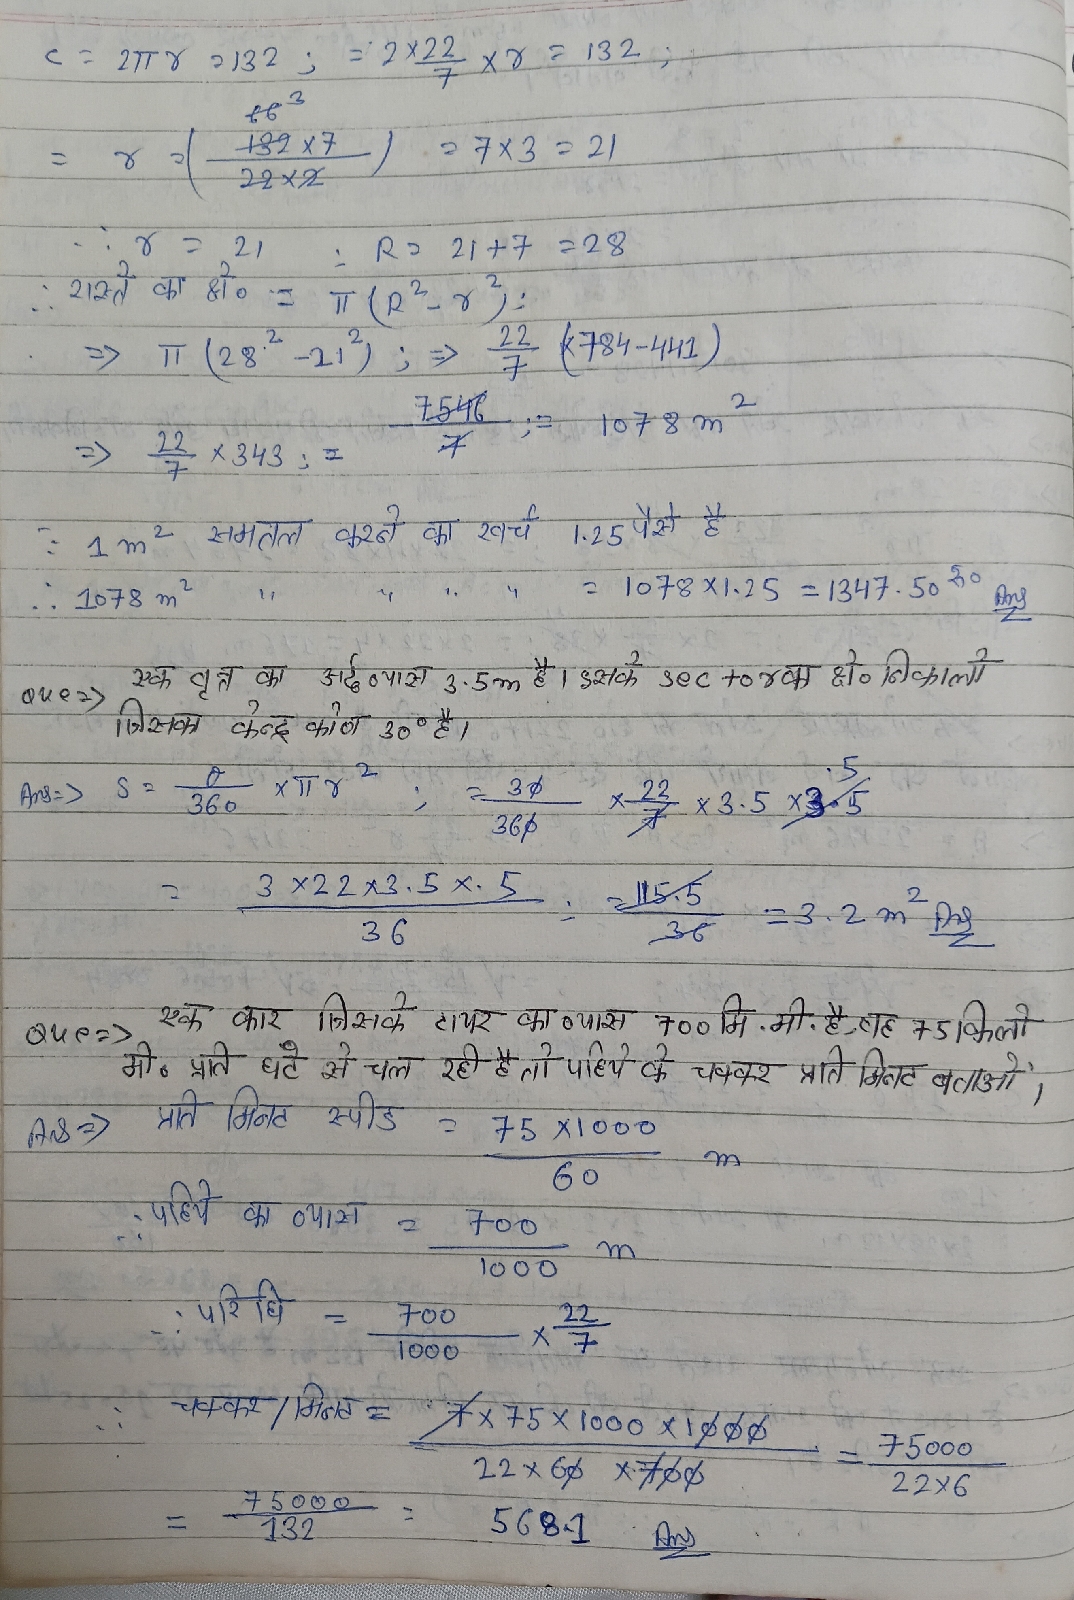 c = 2πr = 132 ; = 2×22/7 × r = 132 ;
= r = (132×7 / 22×2) = 7×3 = 21
66 3
∴ r = 21 ; R = 21+7 = 28
∴ रास्ते का क्षे० = π(R² - r²) ;
⇒ π(28² - 21²) ; ⇒ 22/7 (784-441)
⇒ 22/7 × 343 ; = 7546/7 ; = 1078 m²
∵ 1 m² समतल करने का खर्च 1.25 पैसे है
∴ 1078 m² " " " " = 1078×1.25 = 1347.50 रु० Ans
Que⇒ एक वृत्त का अर्द्धव्यास 3.5m है। इसके sector का क्षे० निकालो
जिसका केन्द्र कोण 30° है।
Ans⇒ S = θ/360 × πr² ; = 30/360 × 22/7 × 3.5 × 3.5 .5
= 3×22×3.5×.5 / 36 ; = 115.5/36 = 3.2 m² Ans
Que⇒ एक कार जिसके टायर का व्यास 700 मि.मी. है, वह 75 किलो
मी० प्रति घंटे से चल रही है तो पहिये के चक्कर प्रति मिनट बताओ।
Ans⇒ प्रति मिनट स्पीड = 75×1000 / 60 m
∴ पहिये का व्यास = 700/1000 m
∴ परिधि = 700/1000 × 22/7
∴ चक्कर/मिनट = 7×75×1000×1000 / 22×60×700 = 75000 / 22×6
= 75000/132 = 568.1 Ans